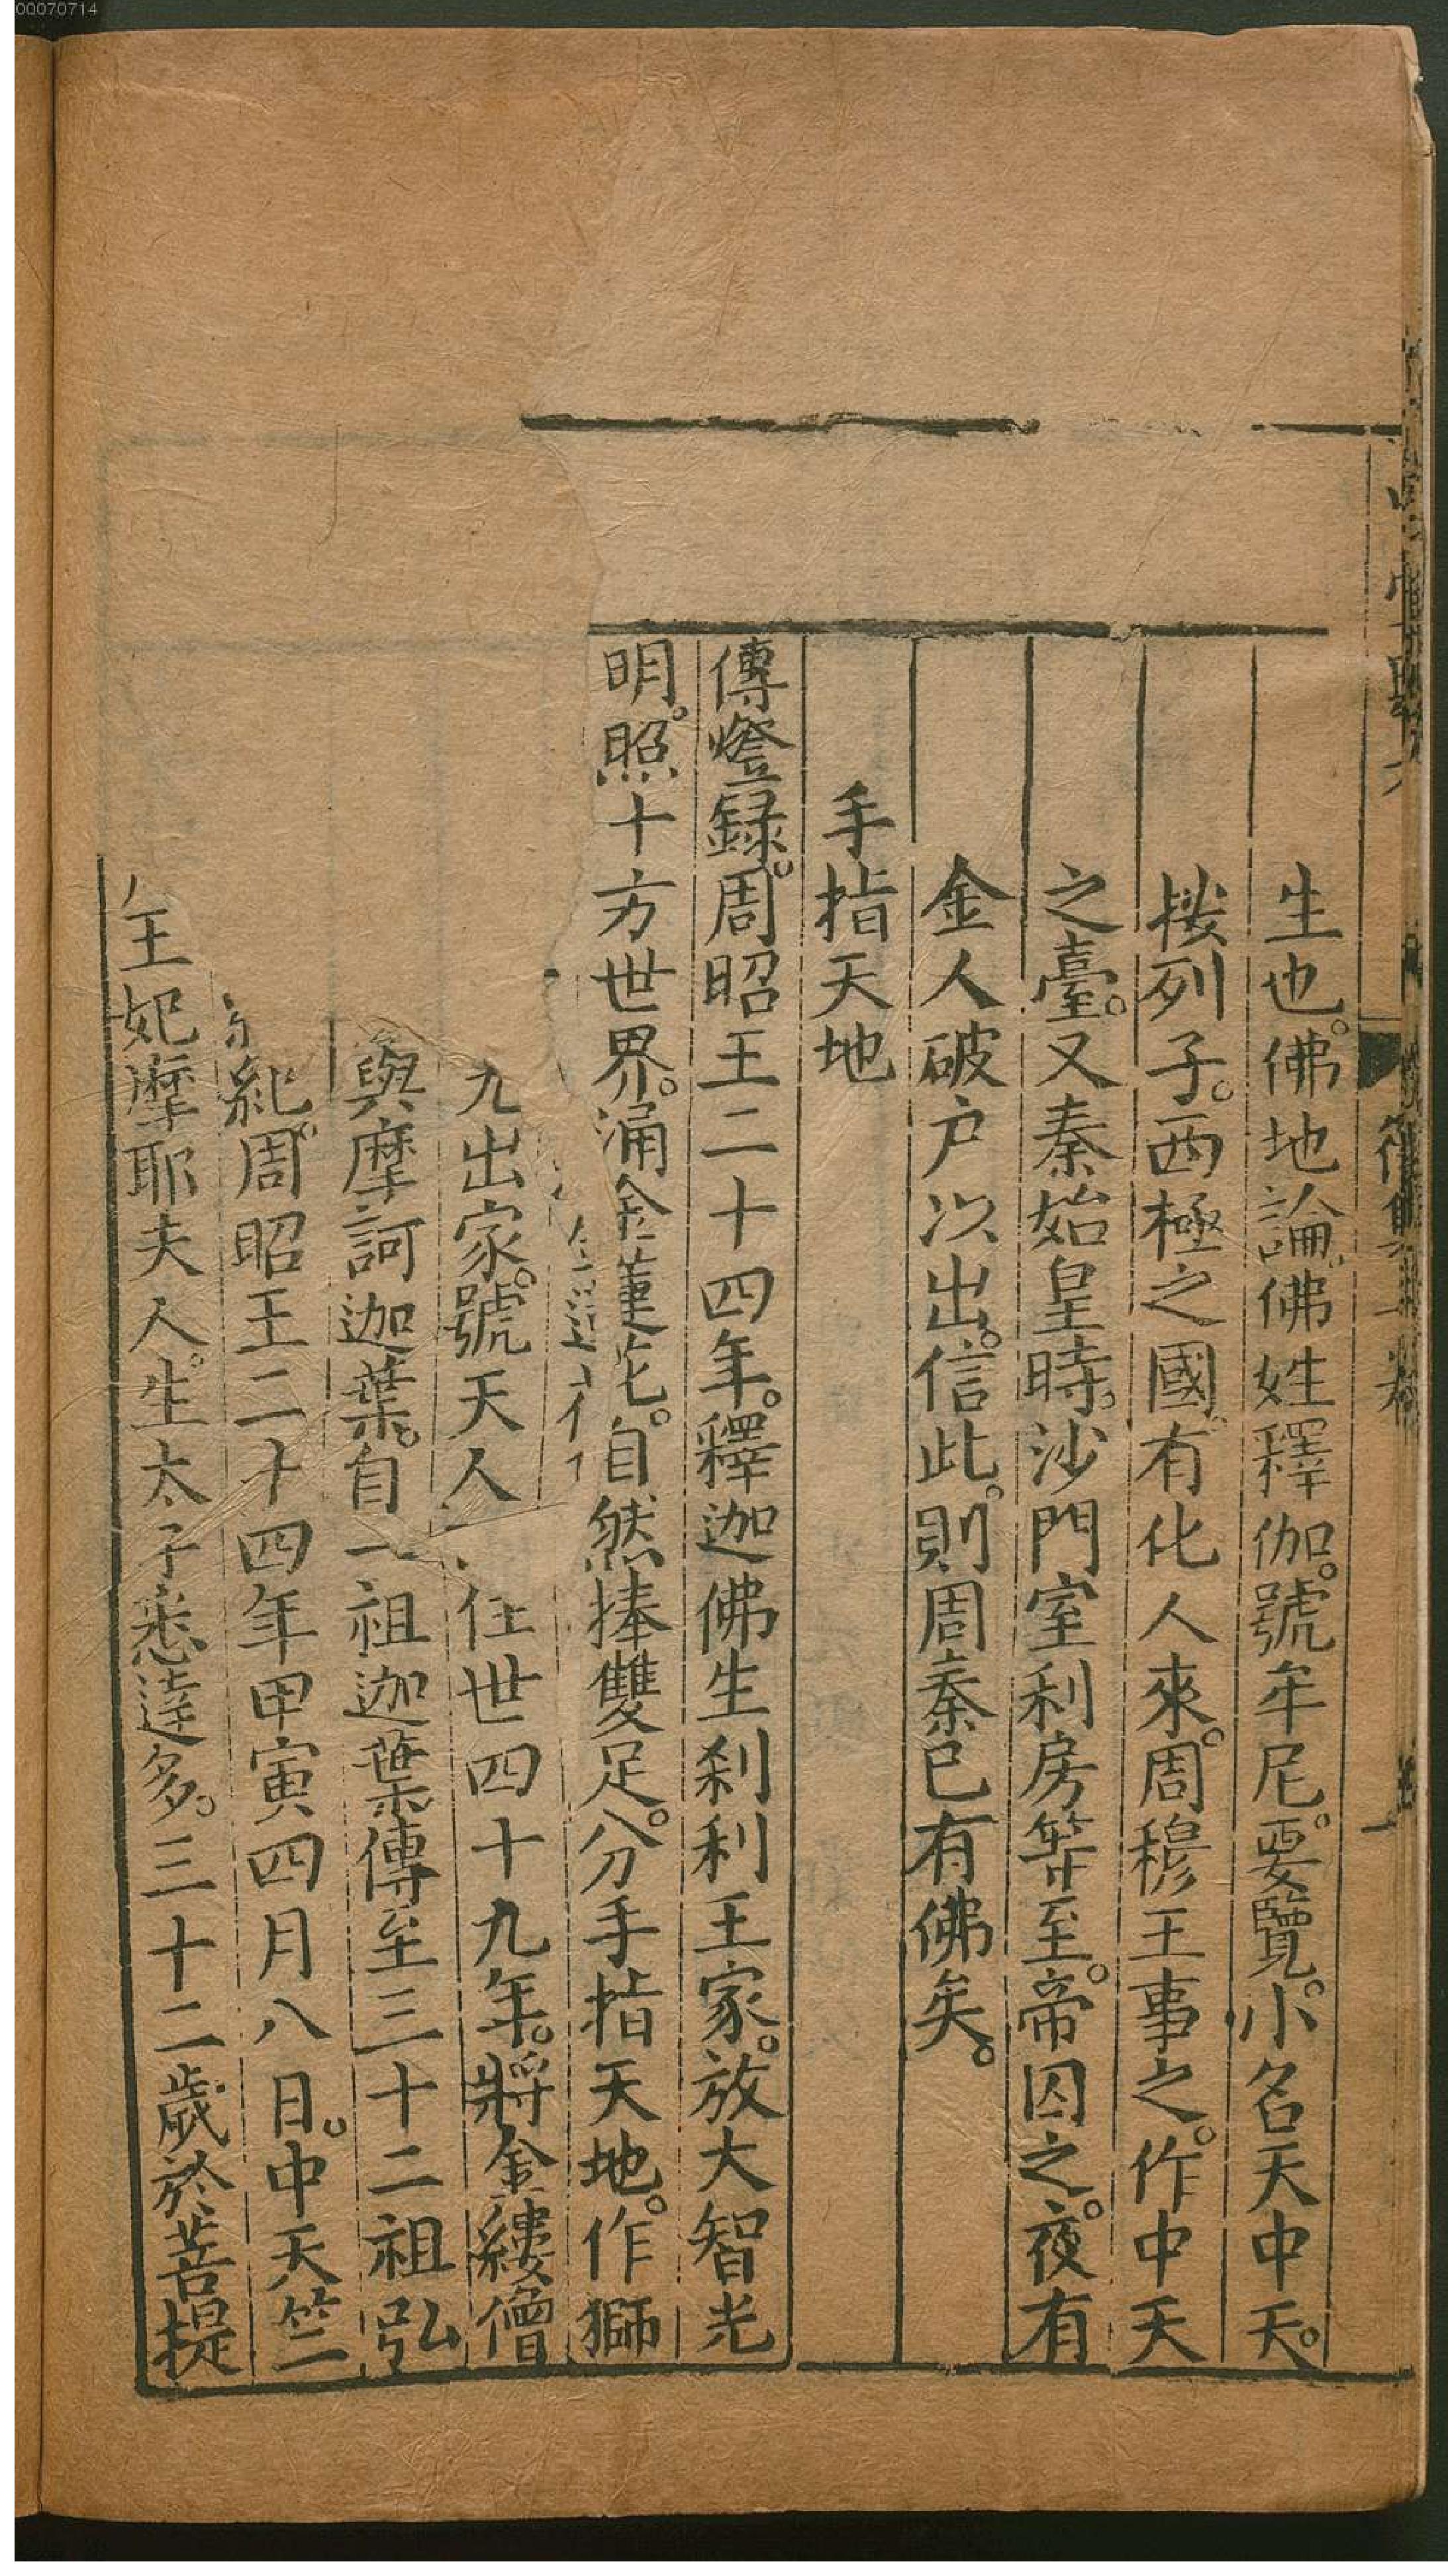 00070714
生也。佛地論。佛姓釋伽。號牟尼。要覽。小名天中天。
按列子。西極之國。有化人來。周穆王事之。作中天
之臺。又秦始皇時。沙門室利房等至。帝囚之。夜有
金人破戶以出。信此。則周秦已有佛矣。
手指天地
傳燈錄。周昭王二十四年。釋迦佛生刹利王家。放大智光
明。照十方世界。涌金蓮花。自然捧雙足。分手指天地。作獅
九出家。號天人住世四十九年。將金縷僧
與摩訶迦葉。自一祖迦葉傳至三十二祖弘
紀。周昭王二十四年甲寅四月八日。中天竺
王妃摩耶夫人。生太子悉達多。三十二歲於菩提